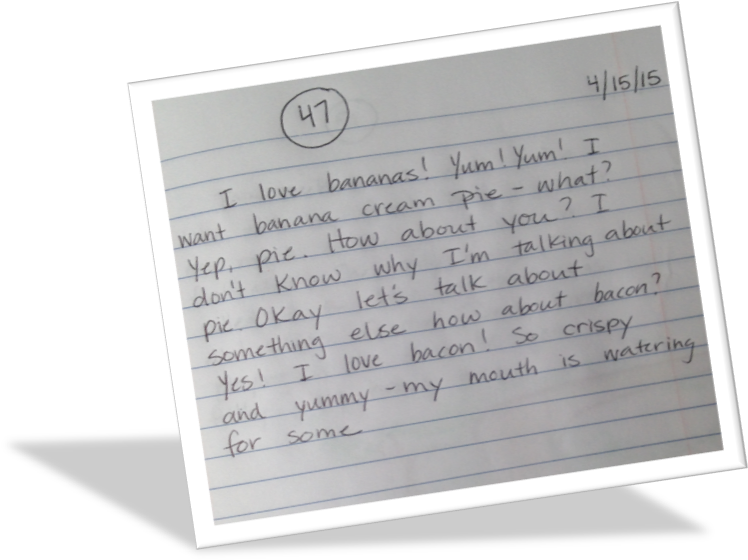 47
4/15/15
I love bananas! Yum! Yum! I
want banana cream pie - what?
Yep, pie. How about you? I
don't know why I'm talking about
pie. Okay let's talk about
something else how about bacon?
Yes! I love bacon! So crispy
and yummy - my mouth is watering
for some